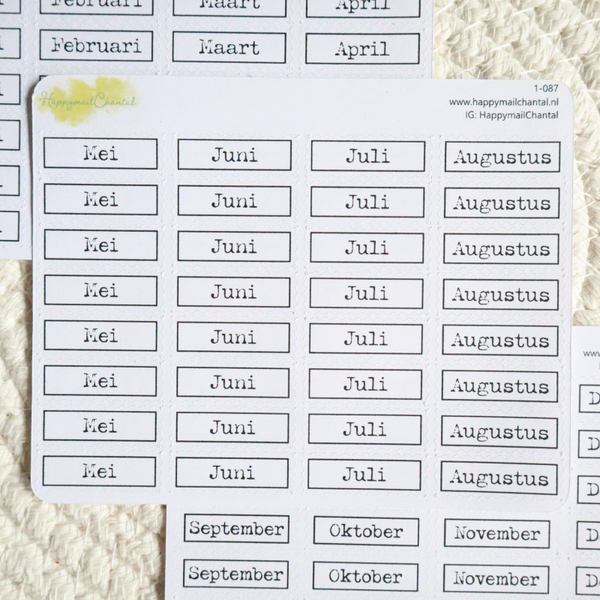 Februari Maart April
Februari Maart April
HappymailChantal
1-087
www.happymailchantal.nl
IG: HappymailChantal
Mei Juni Juli Augustus
Mei Juni Juli Augustus
Mei Juni Juli Augustus
Mei Juni Juli Augustus
Mei Juni Juli Augustus
Mei Juni Juli Augustus
Mei Juni Juli Augustus
Mei Juni Juli Augustus
September Oktober November
September Oktober November